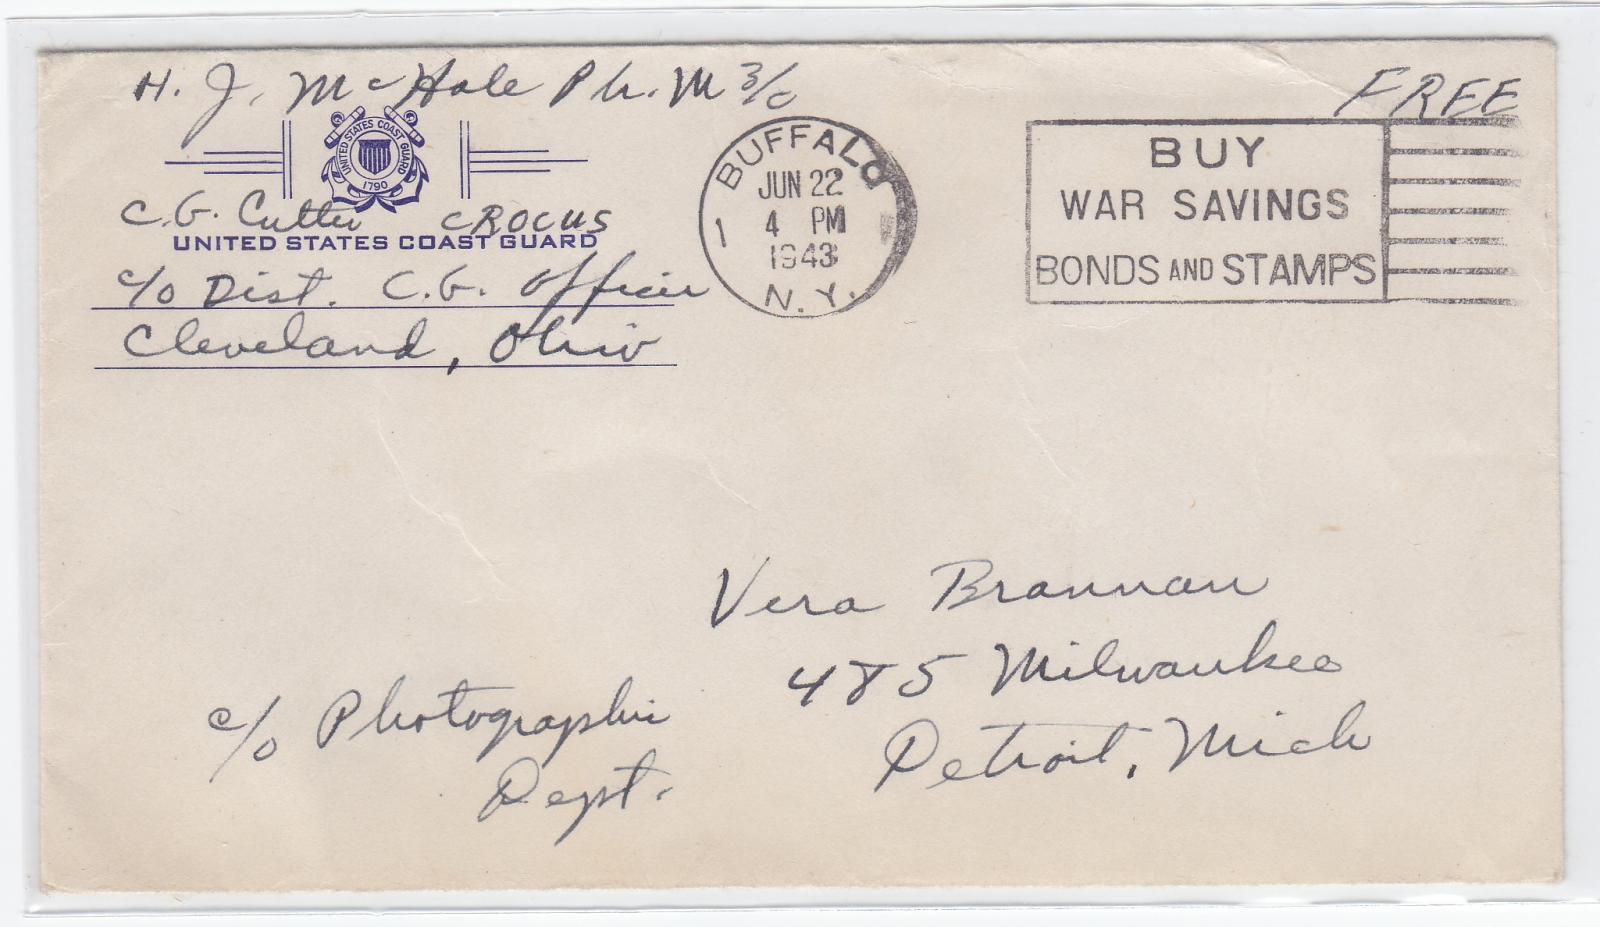 H. J. McHale Ph. M 3/c
UNITED STATES COAST GUARD
1790
C.G. Cutter CROCUS
UNITED STATES COAST GUARD
c/o Dist. C.G. Officer
Cleveland, Ohio
BUFFALO
JUN 22
1 4 PM
1943
N. Y.
FREE
BUY
WAR SAVINGS
BONDS AND STAMPS
Vera Brannan
485 Milwaukee
Detroit, Mich
c/o Photographic
Dept.